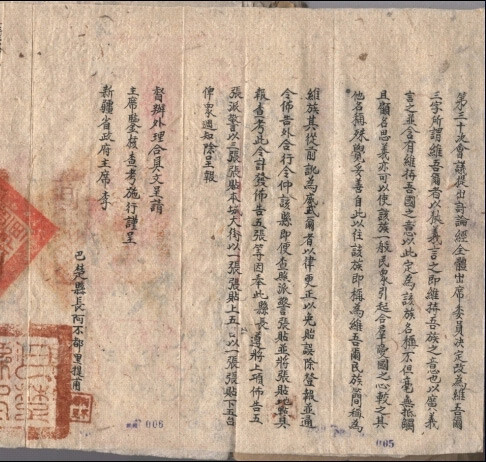 第三十次會議提出討論經全體出席委員決定改為維吾爾
三字所謂維吾爾者以狹義言之即維持吾族之意也以廣義
言之並含有維持吾國之意以此定為該族名稱不但毫無抵觸
且顧名思義亦可以使該族一般民眾引起合羣愛國之心較之其
他名稱殊覺妥善自此以往該族即稱為維吾爾民族簡稱為
維族其從前訛為 者以律更正以免貽誤除登報並通
令佈告外合行令仰該縣即便查照派警張貼並將張貼地點具
報查考此令計發佈告五張等因奉此縣長遵將上項佈告五
張派警以三張張貼本城大街以一張張貼上五 以一張張貼下五台
俾眾週知除呈報
督辦外理合具文呈請
主席鑒核查考施行謹呈
新疆省政府主席李
巴楚縣長阿不都里提甫
006
005